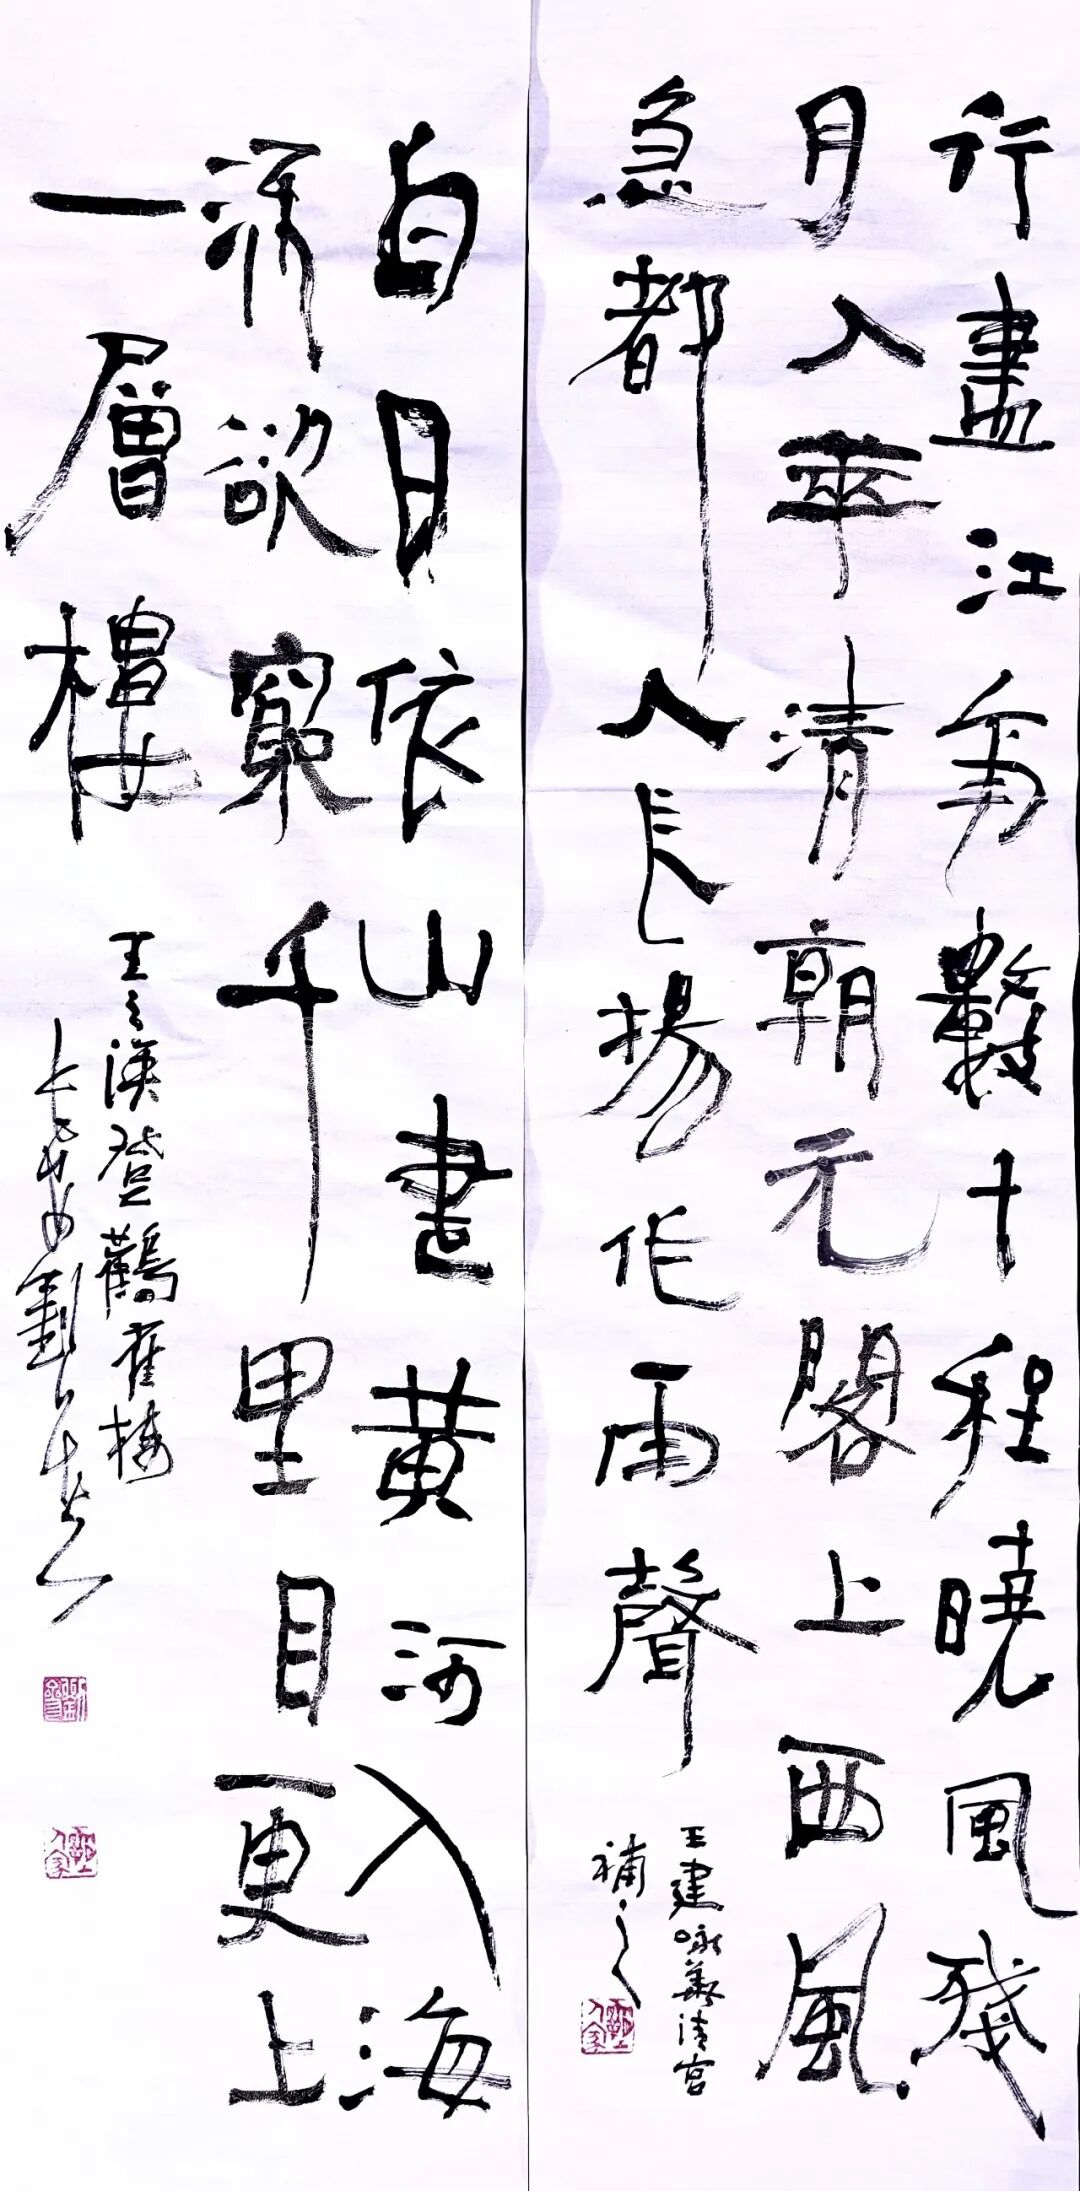 行盡江南數十程曉風殘
月入華清朝元閣上西風
急都入長楊作雨聲
王建咏華清宮
補之
白日依山盡黃河入海
流欲窮千里目更上
一層樓
王之渙登鸛雀樓